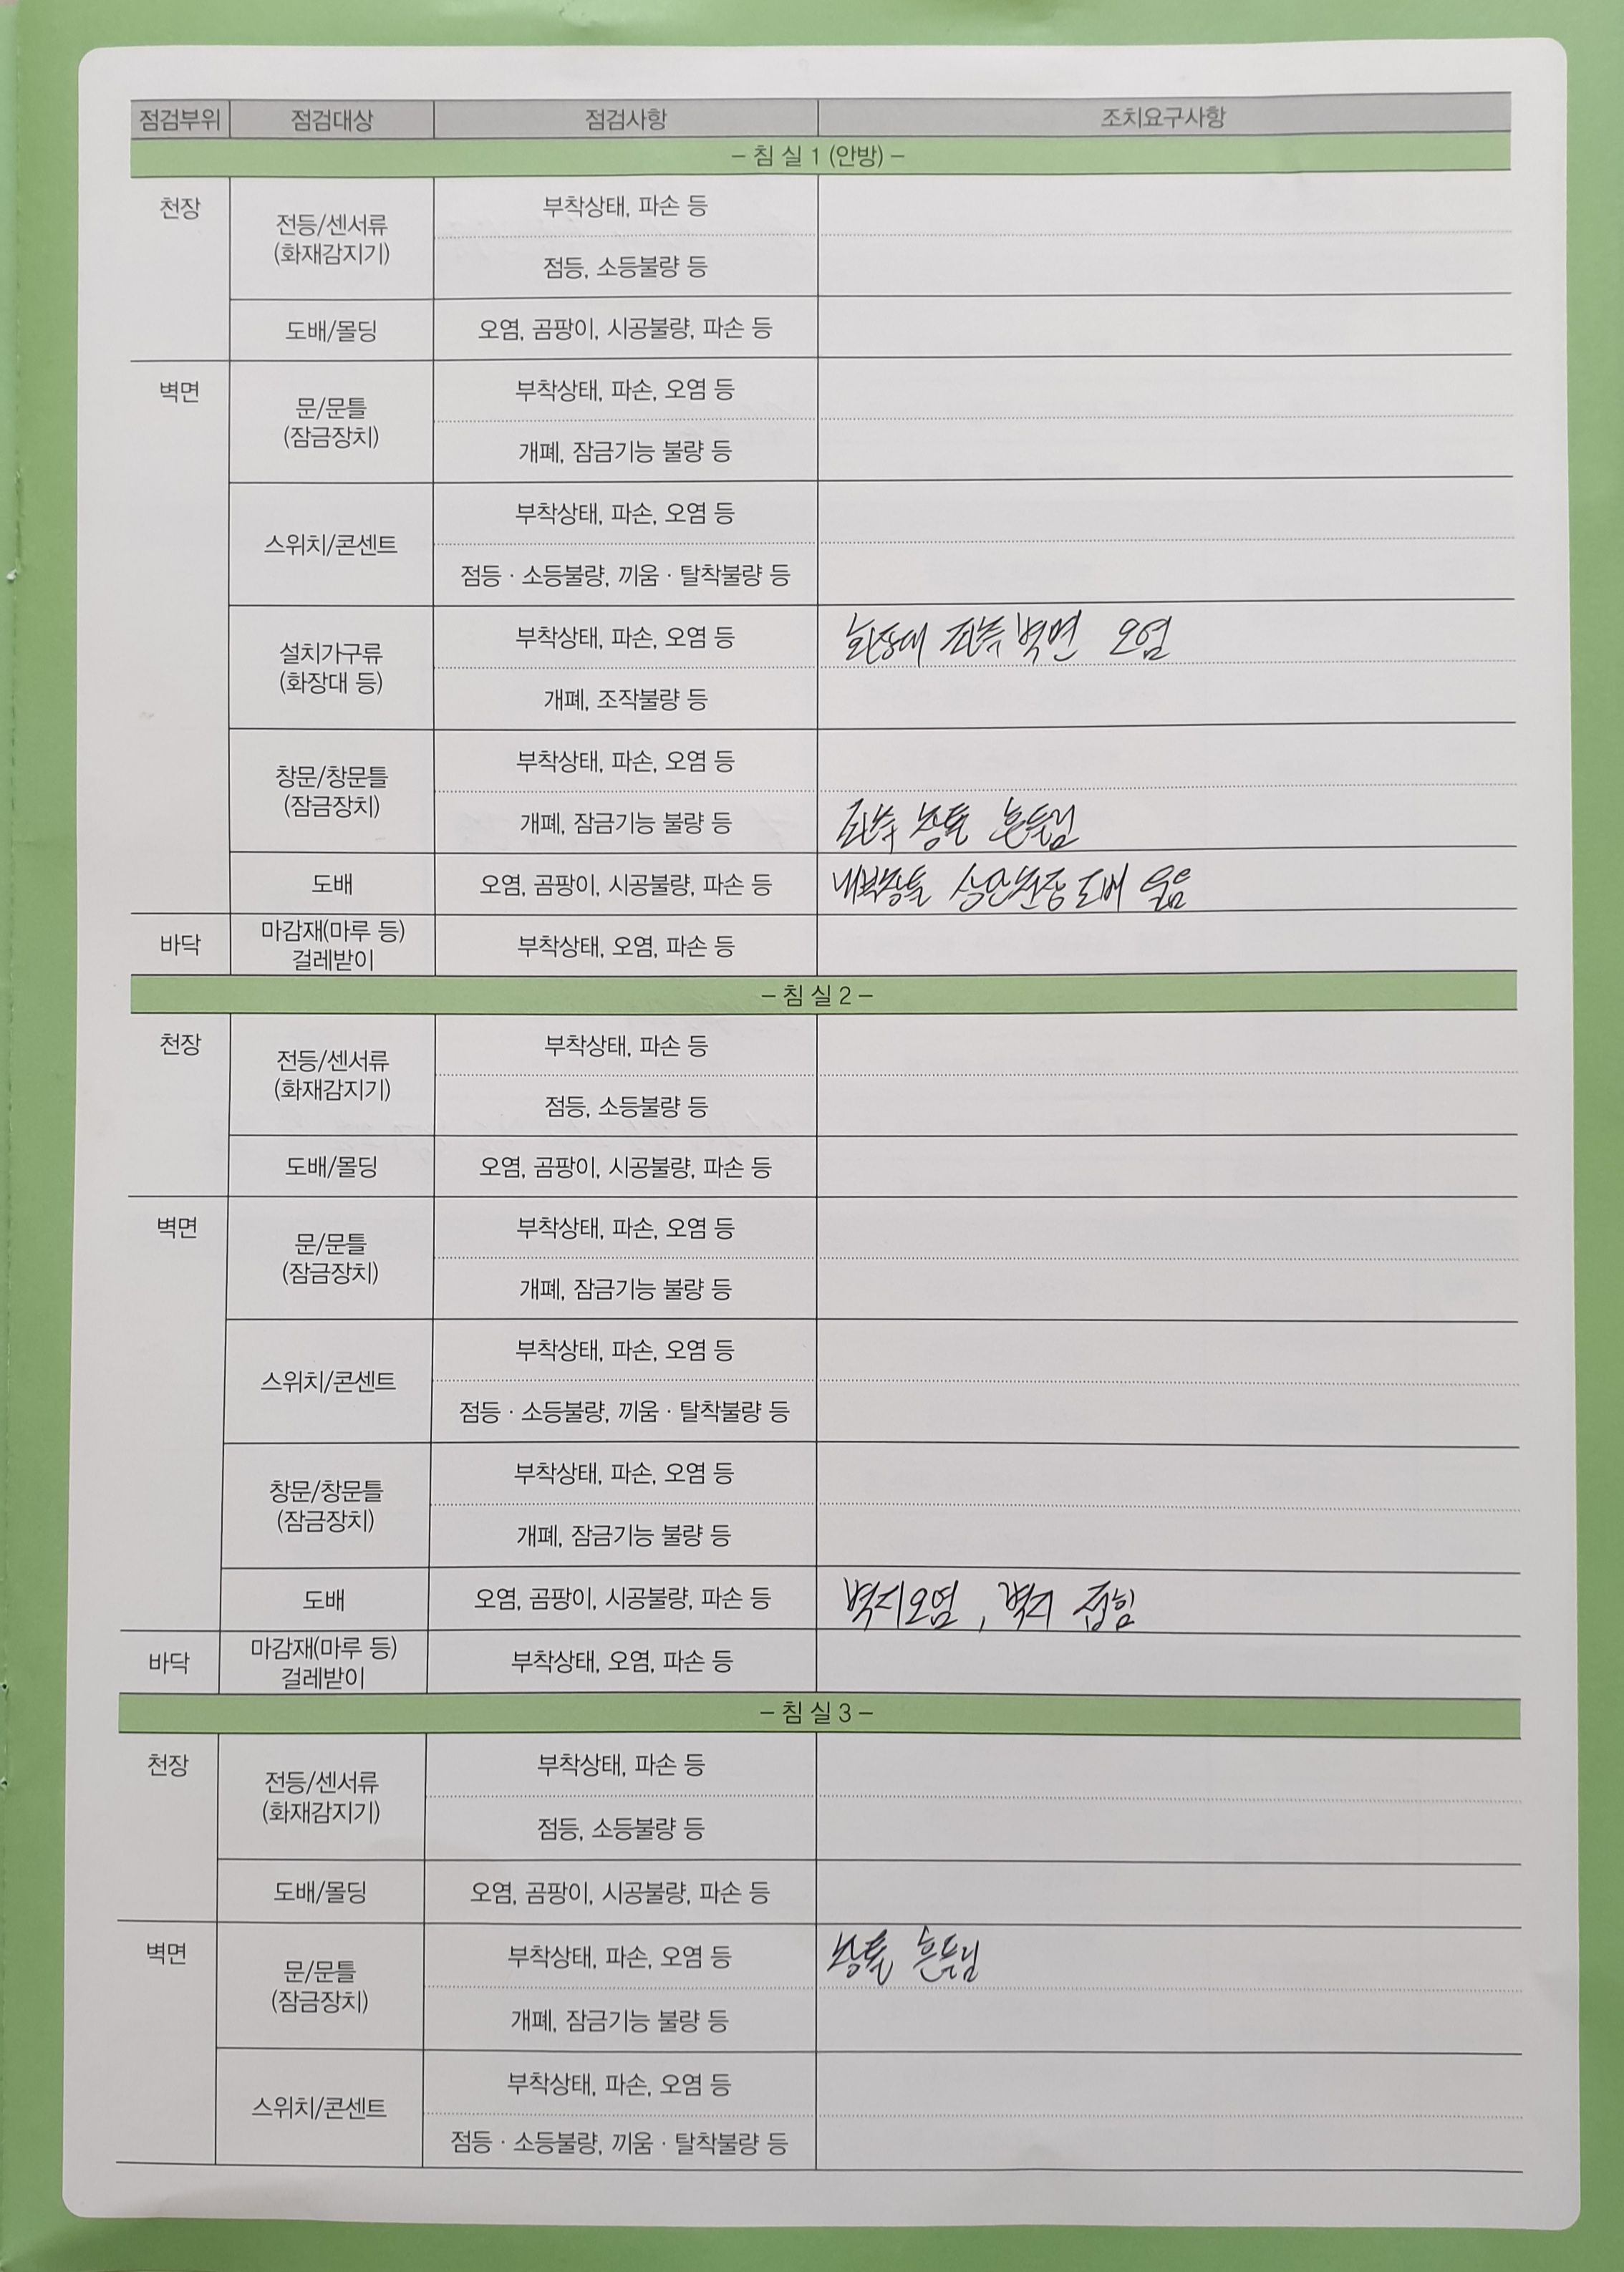 점검부위 점검대상 점검사항 조치요구사항
– 침 실 1 (안방) –
천장 전등/센서류 (화재감지기) 부착상태, 파손 등
점등, 소등불량 등
도배/몰딩 오염, 곰팡이, 시공불량, 파손 등
벽면 문/문틀 (잠금장치) 부착상태, 파손, 오염 등
개폐, 잠금기능 불량 등
스위치/콘센트 부착상태, 파손, 오염 등
점등 · 소등불량, 끼움 · 탈착불량 등
설치가구류 (화장대 등) 부착상태, 파손, 오염 등 화장대 좌측 벽면 오염
개폐, 조작불량 등
창문/창문틀 (잠금장치) 부착상태, 파손, 오염 등
개폐, 잠금기능 불량 등 좌측 창틀 흔들림
도배 오염, 곰팡이, 시공불량, 파손 등 내부창틀 상단천장 도배 울음
바닥 마감재(마루 등) 걸레받이 부착상태, 오염, 파손 등
– 침 실 2 –
천장 전등/센서류 (화재감지기) 부착상태, 파손 등
점등, 소등불량 등
도배/몰딩 오염, 곰팡이, 시공불량, 파손 등
벽면 문/문틀 (잠금장치) 부착상태, 파손, 오염 등
개폐, 잠금기능 불량 등
스위치/콘센트 부착상태, 파손, 오염 등
점등 · 소등불량, 끼움 · 탈착불량 등
창문/창문틀 (잠금장치) 부착상태, 파손, 오염 등
개폐, 잠금기능 불량 등
도배 오염, 곰팡이, 시공불량, 파손 등 벽지오염, 벽지 접힘
바닥 마감재(마루 등) 걸레받이 부착상태, 오염, 파손 등
– 침 실 3 –
천장 전등/센서류 (화재감지기) 부착상태, 파손 등
점등, 소등불량 등
도배/몰딩 오염, 곰팡이, 시공불량, 파손 등
벽면 문/문틀 (잠금장치) 부착상태, 파손, 오염 등 창틀 흔들림
개폐, 잠금기능 불량 등
스위치/콘센트 부착상태, 파손, 오염 등
점등 · 소등불량, 끼움 · 탈착불량 등